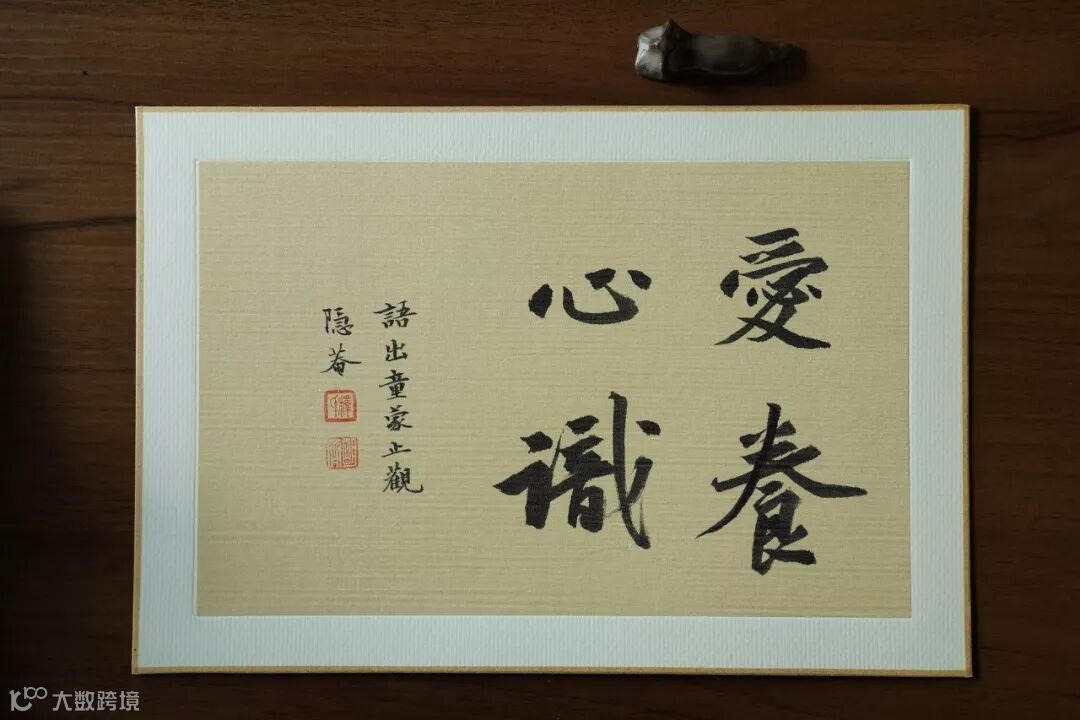 愛養
心識
語出童蒙止觀
隱菴
大数跨境